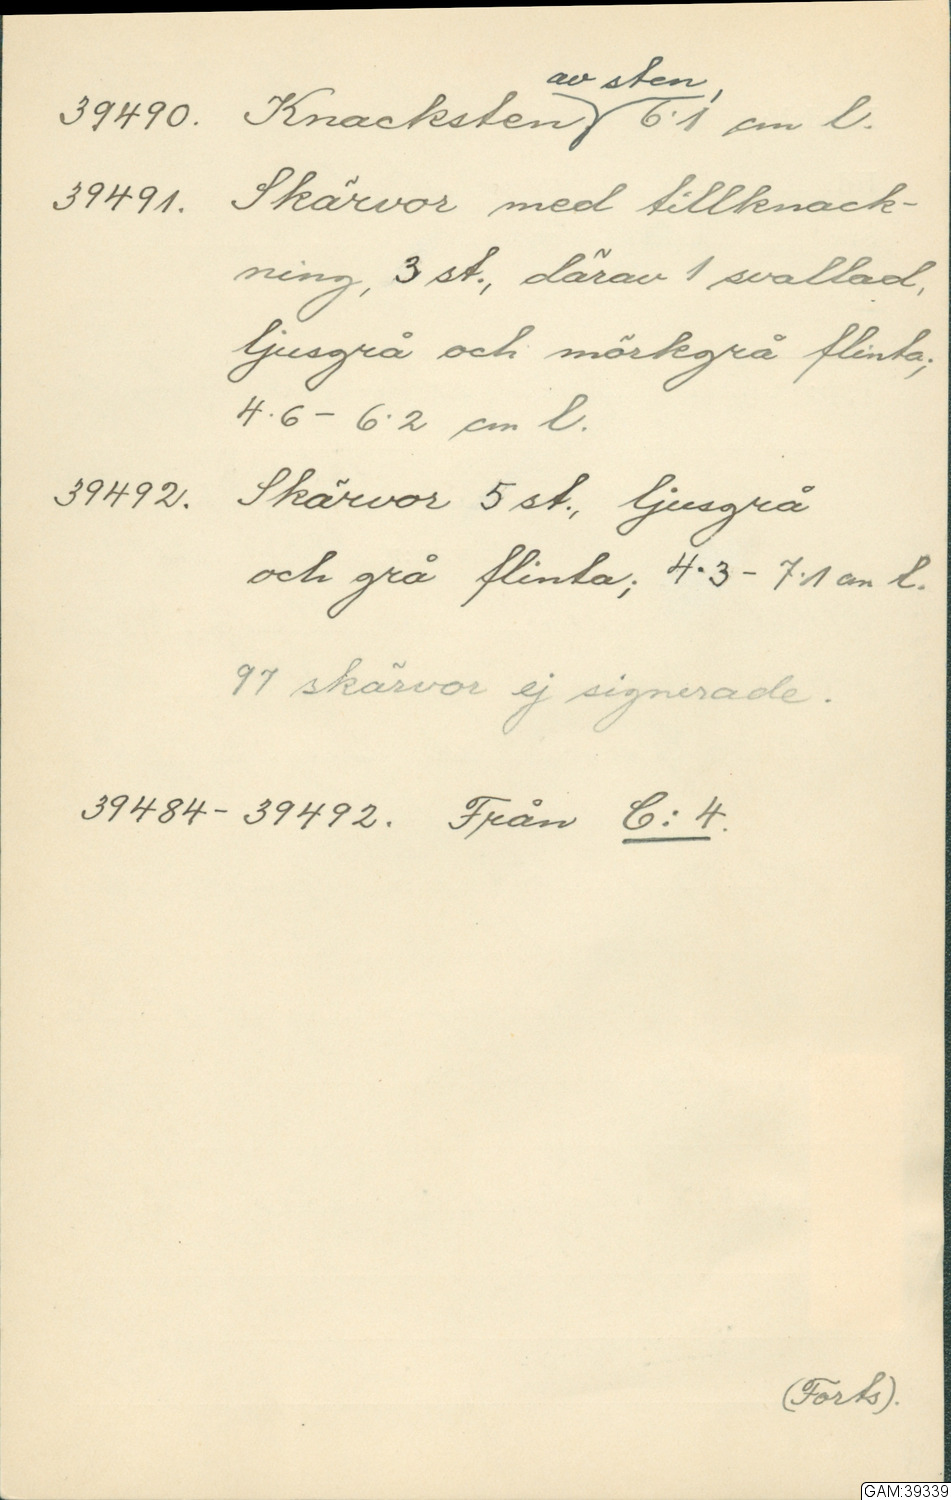 39490. Knacksten av sten, 6·1 cm l.
39491. Skärvor med tillknack-
ning, 3 st., därav 1 svallad,
ljusgrå och mörkgrå flinta;
4·6 – 6·2 cm l.
39492. Skärvor 5 st., ljusgrå
och grå flinta; 4·3 – 7·1 cm l.
97 skärvor ej signerade.
39484 – 39492. Från C: 4.
(Forts).
GAM:39339